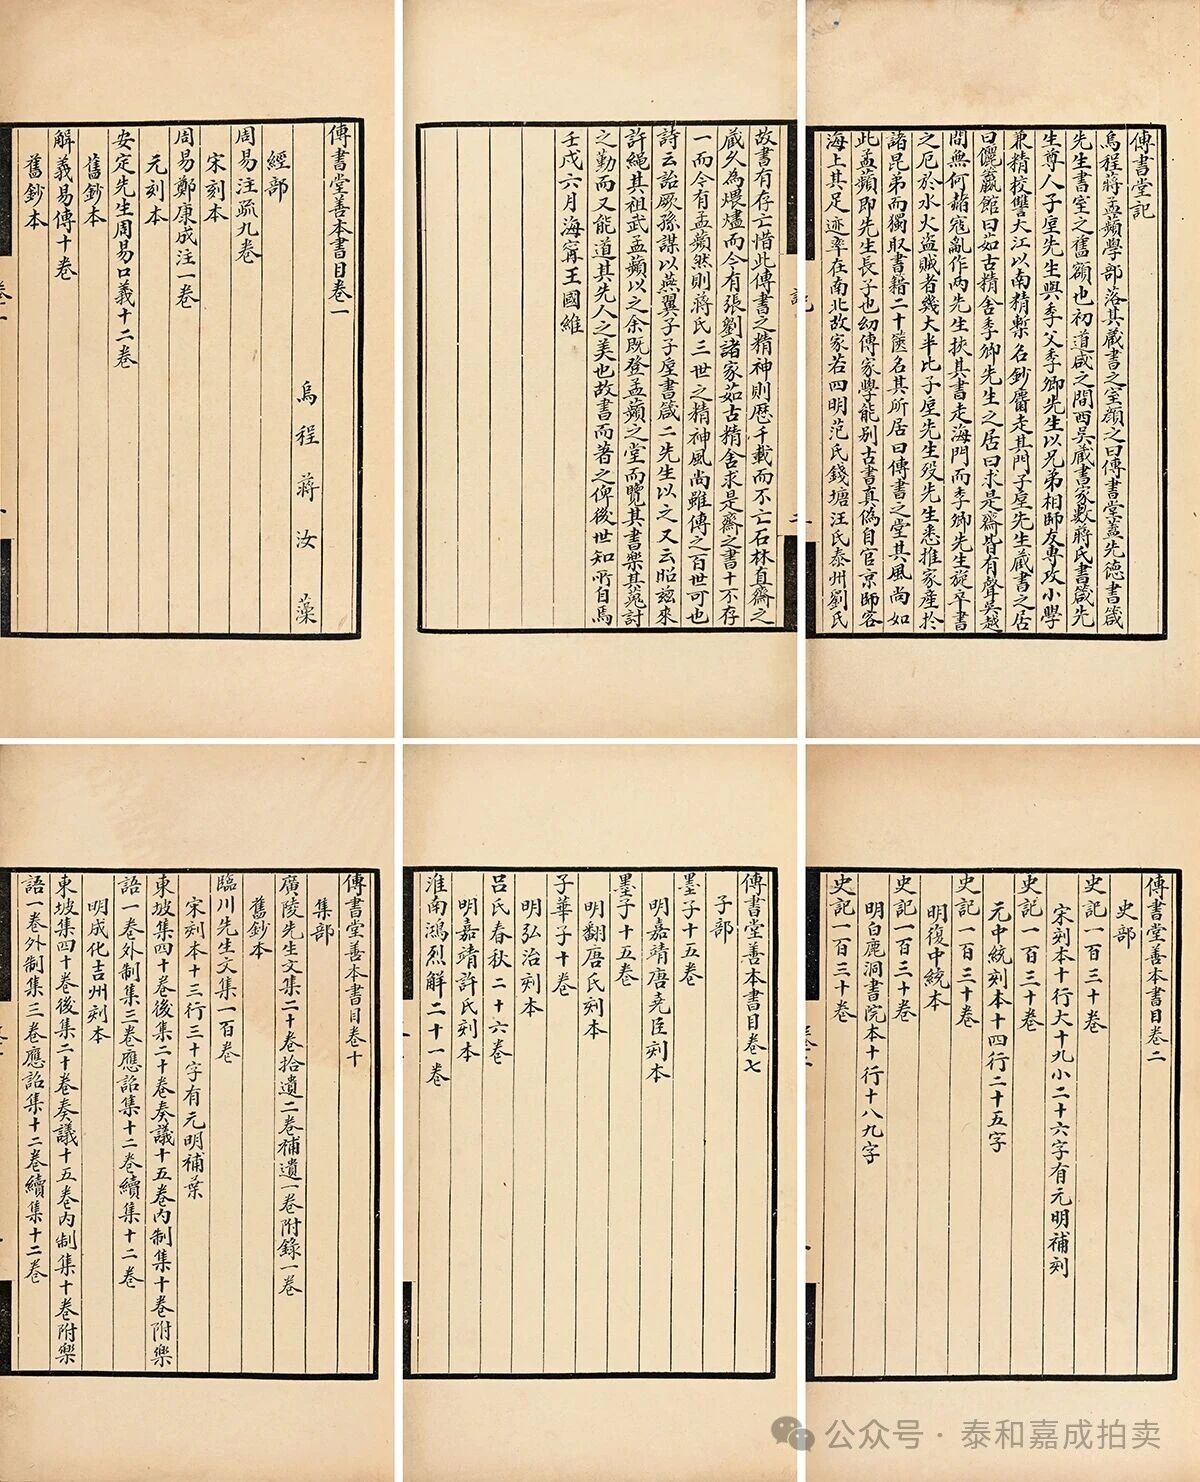 傳書堂記
烏程蔣孟蘋學部落其藏書之室顏之曰傳書堂蓋先德書箴
先生書室之舊額也初道咸之間西吳藏書家數蔣氏書箴先
生尊人子垕先生與季父季卿先生以兄弟相師友專攻小學
兼精校讐大江以南精槧名鈔麕走其門子垕先生藏書之居
曰儷籯館曰茹古精舍季卿先生之居曰求是齋皆有聲吳越
間無何諸寇亂作兩先生挾其書走海門而季卿先生旋卒書
之厄於水火盜賊者幾大半比子垕先生歿先生悉推家產於
諸昆弟而獨取書籍二十篋名其所居曰傳書之堂其風尚如
此孟蘋即先生長子也幼傳家學能别古書真偽自官京師客
海上其足迹率在南北故家若四明范氏錢塘汪氏泰州劉氏
故書有存亡惜此傳書之精神則歷千載而不亡石林直齋之
藏久為煨燼而今有張劉諸家茹古精舍求是齋之書十不存
一而今有孟蘋然則蔣氏三世之精神風尚雖傳之百世可也
詩云詒厥孫謀以燕翼子子垕書箴二先生以之又云昭茲來
許繩其祖武孟蘋以之余既登孟蘋之堂而覽其書樂其蒐討
之勤而又能道其先人之美也故書而著之俾後世知所自焉
壬戌六月海寧王國維
傳書堂善本書目卷一
烏程蔣汝藻
經部
周易注疏九卷
宋刻本
周易鄭康成注一卷
元刻本
安定先生周易口義十二卷
舊鈔本
觧義易傳十卷
舊鈔本
傳書堂善本書目卷二
史部
史記一百三十卷
宋刻本十行大十九小二十六字有元明補刻
史記一百三十卷
元中統刻本十四行二十五字
史記一百三十卷
明復中統本
史記一百三十卷
明白鹿洞書院本十行十八九字
史記一百三十卷
傳書堂善本書目卷七
子部
墨子十五卷
明嘉靖唐堯臣刻本
墨子十五卷
明翻唐氏刻本
子華子十卷
明弘治刻本
呂氏春秋二十六卷
明嘉靖許氏刻本
淮南鴻烈觧二十一卷
傳書堂善本書目卷十
集部
廣陵先生文集二十卷拾遺二卷補遺一卷附錄一卷
舊鈔本
臨川先生文集一百卷
宋刻本十三行三十字有元明補葉
東坡集四十卷後集二十卷奏議十五卷內制集十卷附樂
語一卷外制集三卷應詔集十二卷續集十二卷
明成化吉州刻本
東坡集四十卷後集二十卷奏議十五卷內制集十卷附樂
語一卷外制集三卷應詔集十二卷續集十二卷
公众号·泰和嘉成拍卖